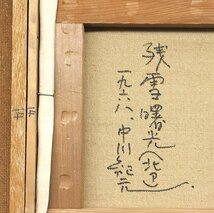 残雪曙光(北ア)
一九六八、中川紀元